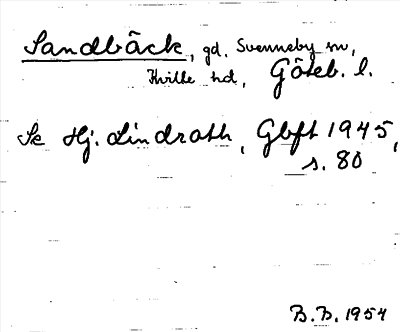 Sandbäck, gd, Svenneby sn,
Kville hd, Göteb. l.
Se Hj. Lindroth, Gbft 1945,
s. 80
B.B. 1954